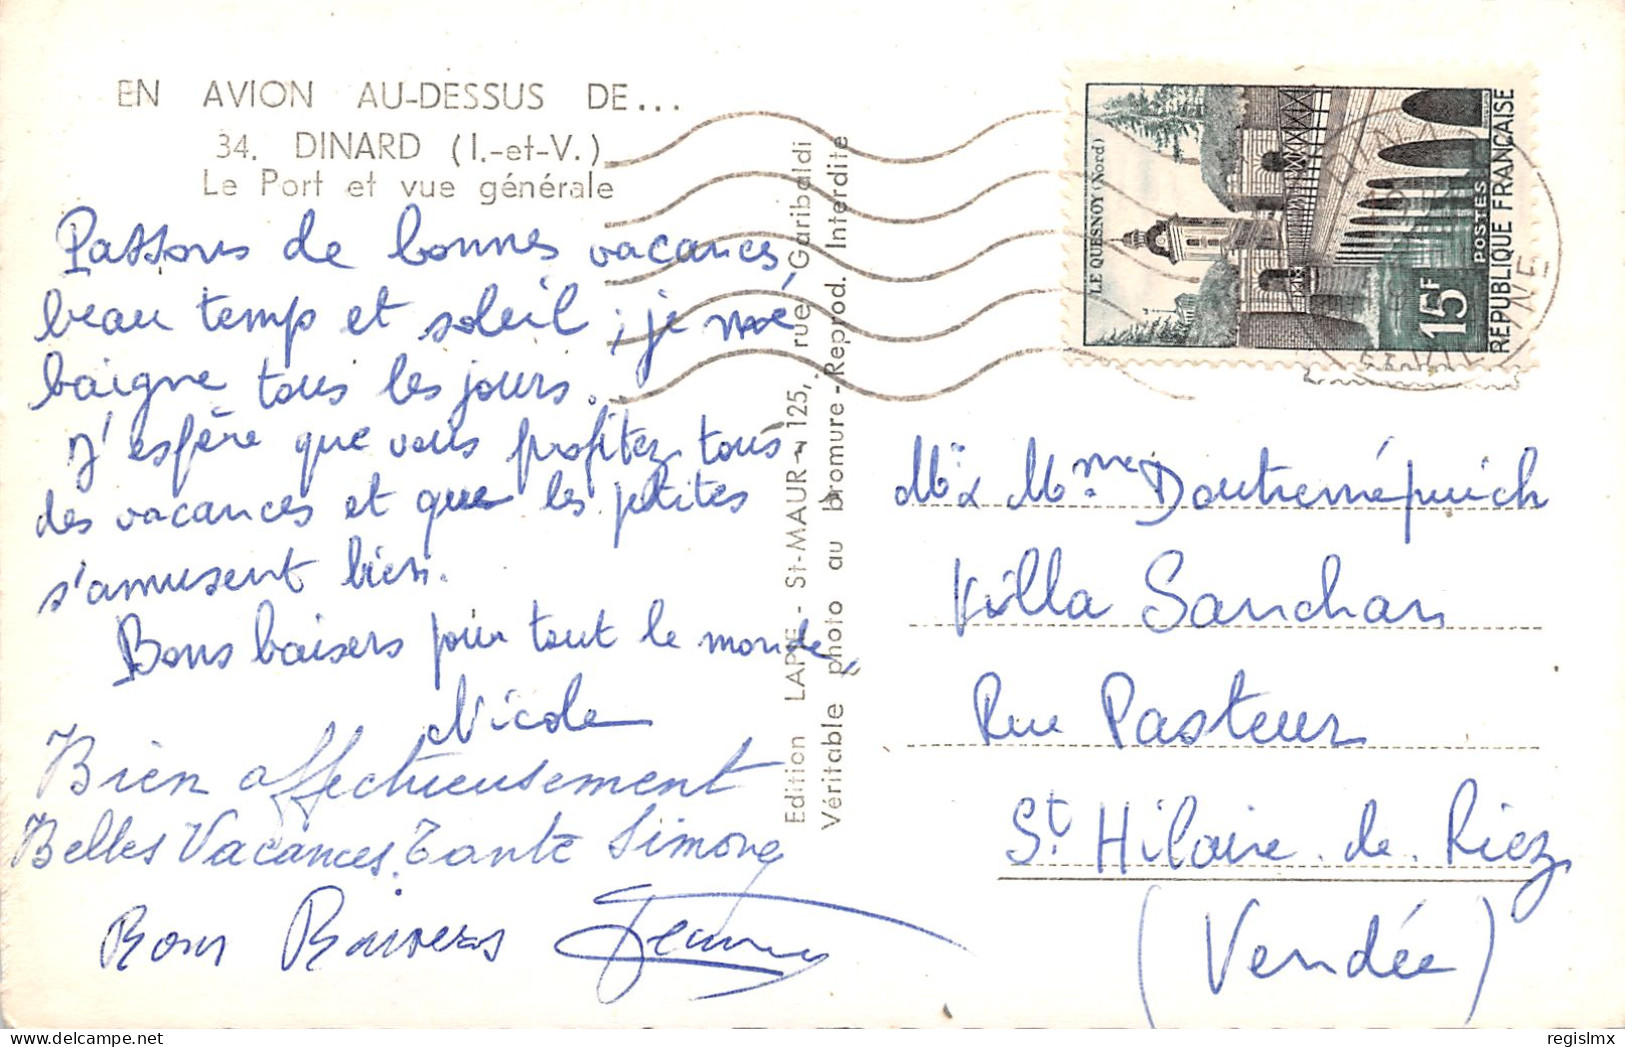 EN AVION AU-DESSUS DE...
34. DINARD (I.-et-V.)
Le Port et vue générale
Passons de bonnes vacances,
beau temps et soleil ; je me
baigne tous les jours.
J'espère que vous profitez tous
des vacances et que les petites
s'amusent bien.
Bons baisers pour tout le monde,
Nicole
Bien affectueusement
Belles Vacances. Tante Simone
Bons Baisers
Edition LAPIE - St-MAUR - 125, rue Garibaldi
Véritable photo au bromure - Reprod. Interdite
LE QUESNOY (Nord)
15F
POSTES
REPUBLIQUE FRANÇAISE
Mr & Mme Doutremépuich
Villa Sanchan
Rue Pasteur
St Hilaire de Riez
(Vendée)
regislmx